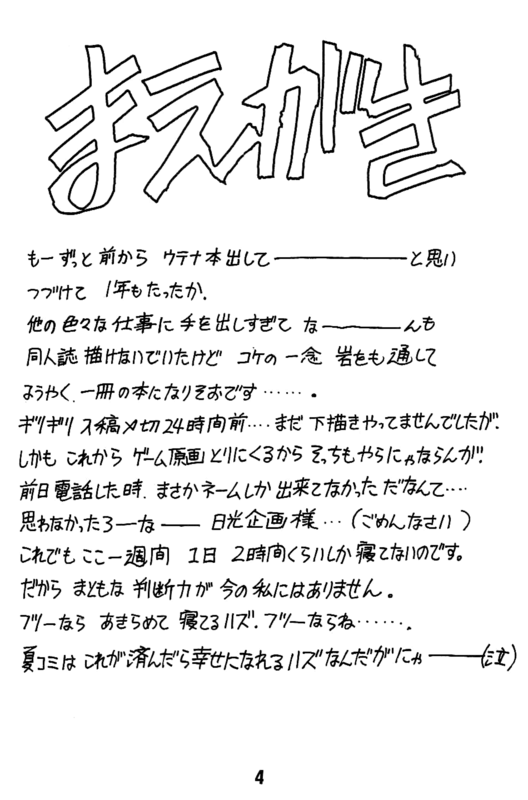 まえがき
もーずっと前から ウテナ本出して――――と思い
つづけて 1年もたったか.
他の色々な仕事に手を出しすぎて な―――んも
同人誌描けないでいたけど コケの一念 岩をも通して
ようやく.一冊の本になりそおです ……。
ギリギリ 入稿〆切24時間前‥‥まだ 下描きやってませんでしたが.
しかも これから ゲーム原画とりにくるから そっちもやらにゃならんが.
前日電話した時.まさかネームしか出来てなかった だなんて‥‥
思わなかったろーな―― 日光企画様…(ごめんなさい)
これでもここ一週間 1日 2時間くらいしか寝てないのです。
だから まともな判断力が今の私にはありません。
フツーなら あきらめて 寝てるハズ.フツーならね…….
夏コミは これが済んだら幸せになれるハズなんだがにゃ――(泣)
4